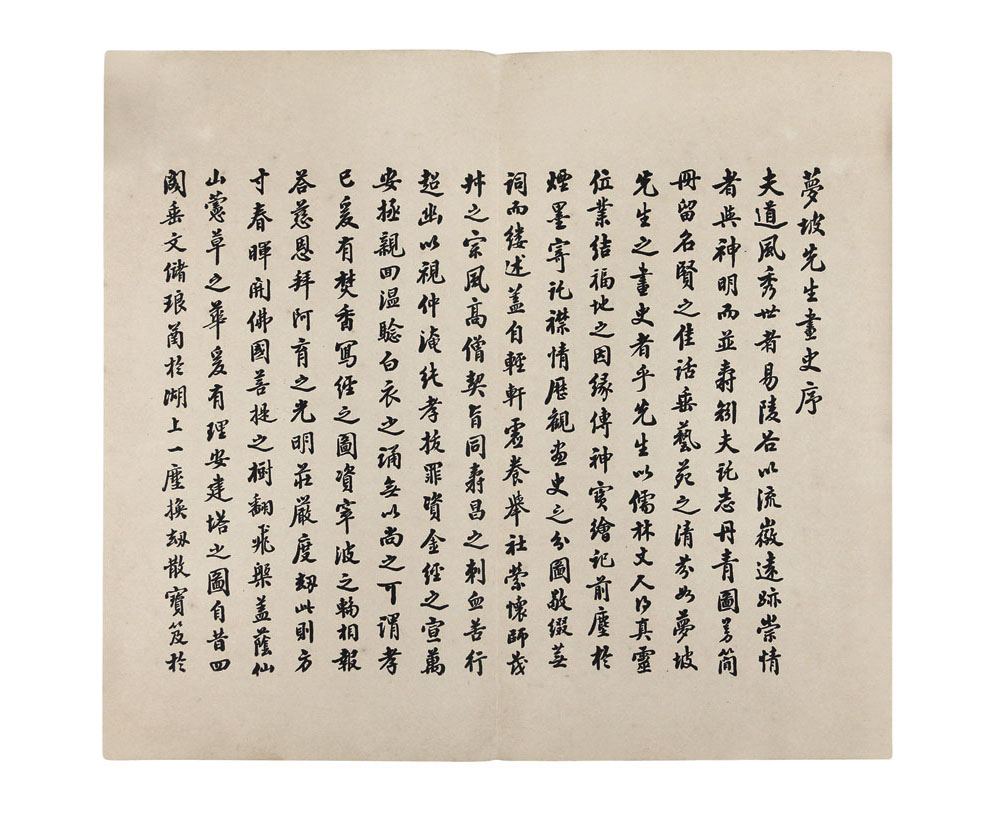 夢坡先生畫史序
夫道風秀世者易陵谷以流徽遠跡崇情
者與神明而並壽矧夫託志丹青圖芳簡
冊留名賢之佳話垂藝苑之清芬如夢坡
先生之畫史者乎先生以儒林文人乃真靈
位業結福地之因緣傳神寶繪記前塵於
煙墨寄託襟情歷觀畫史之分圖敬綴蕪
詞而縷述蓋自輕軒養舉社縈懷師茂
之宗風高僧契旨同壽昌之刺血善行
超幽以視仲淹純孝拔罪資金經之宣萬
安拯親回溫驗白衣之誦無以尚之可謂孝
已爰有焚香寫經之圖資窣波之輪相報
答慈恩拜阿育之光明莊嚴度劫此則方
寸春暉開佛國菩提之樹翻飛槃蓋蔭仙
山薏草之華爰有理安建塔之圖自昔四
閣垂文儲琅蘭於湖上一塵換劫散寶笈於